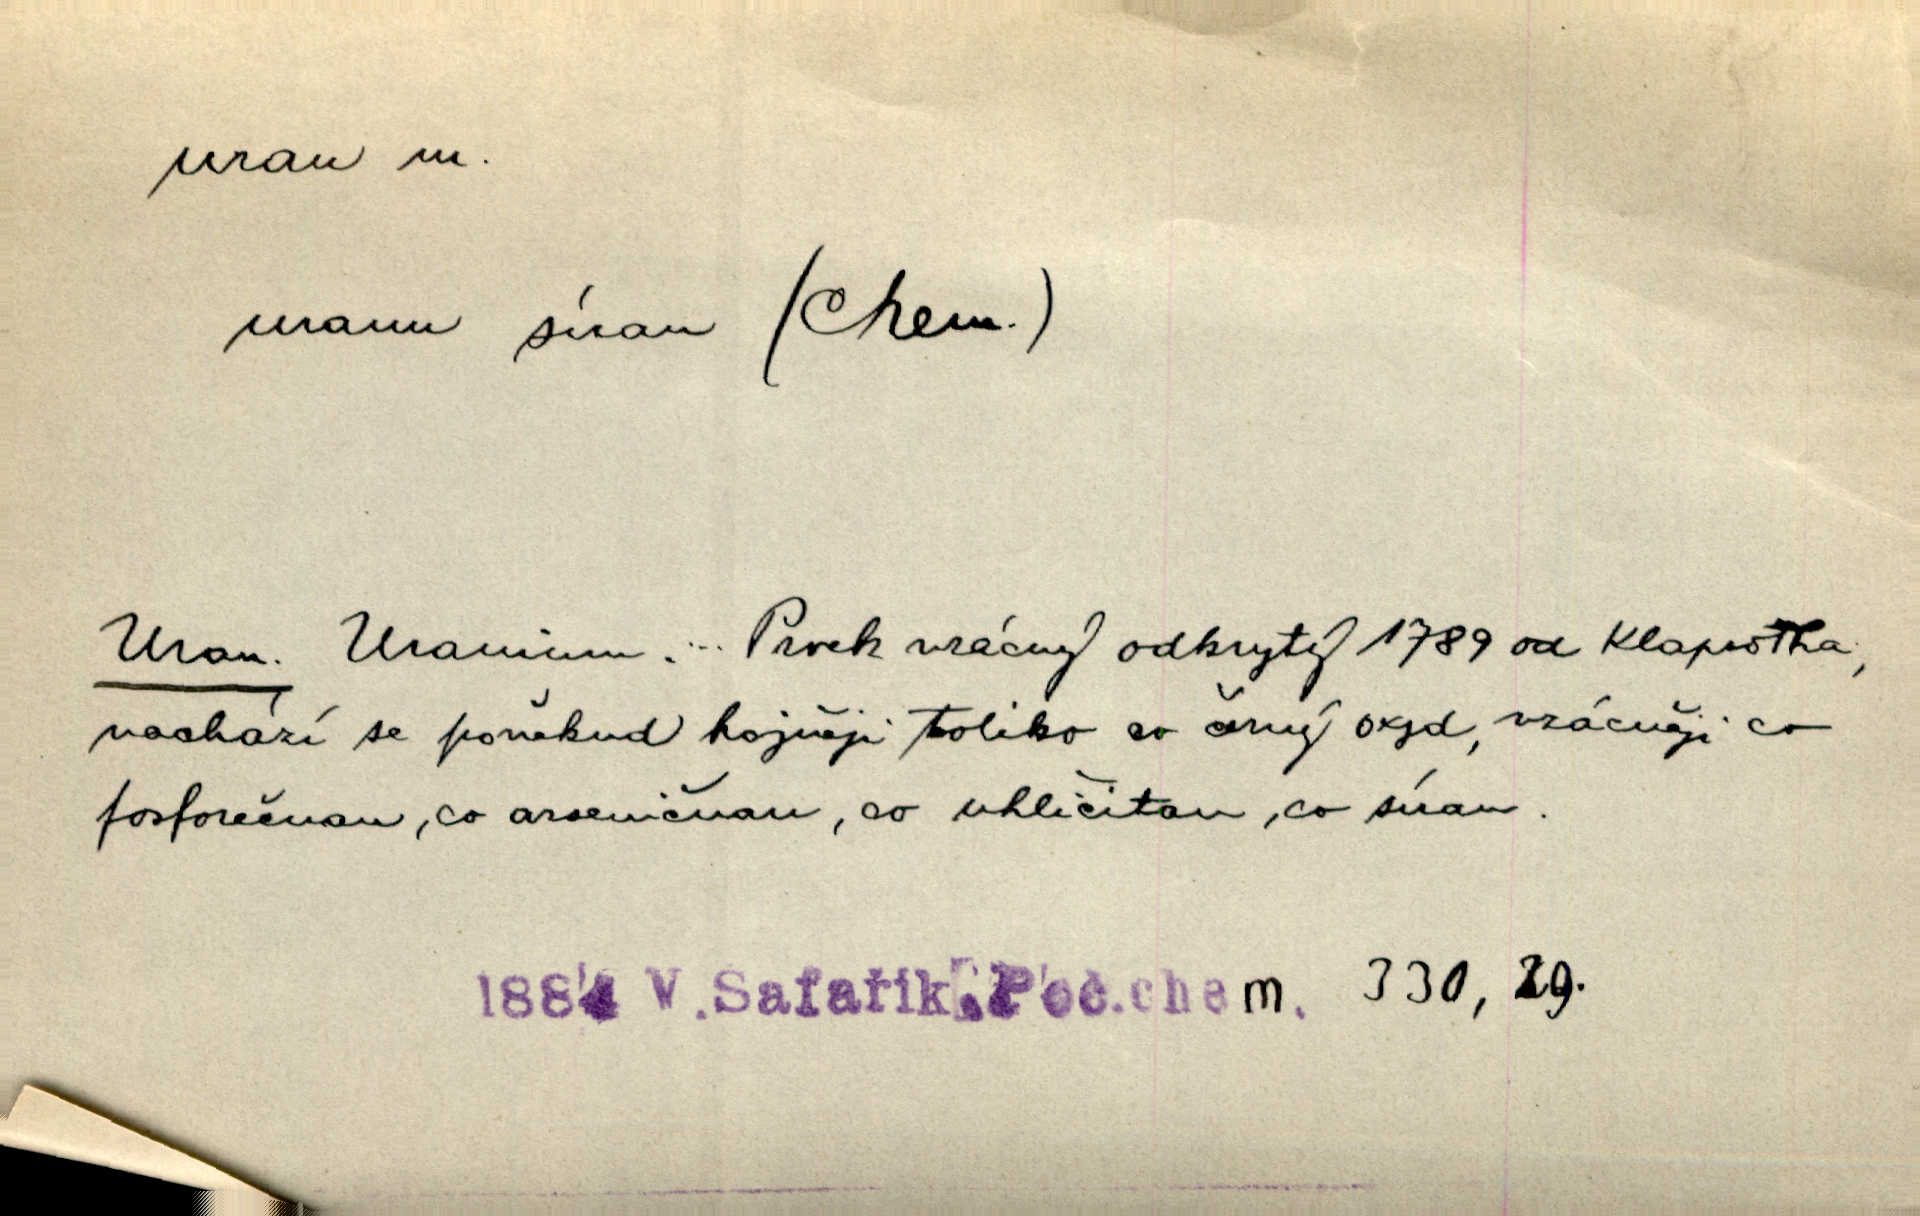 uran m.
uranu síran (Chem.)
Uran. Uranium. ... Prvek vzácný odkrytý 1789 od Klaprotha,
nachází se poněkud hojněji toliko co černý oxyd, vzácněji co
fosforečnan, co arseničnan, co uhličitan, co síran.
1884 V. Šafařík. Poč. chem. 330,